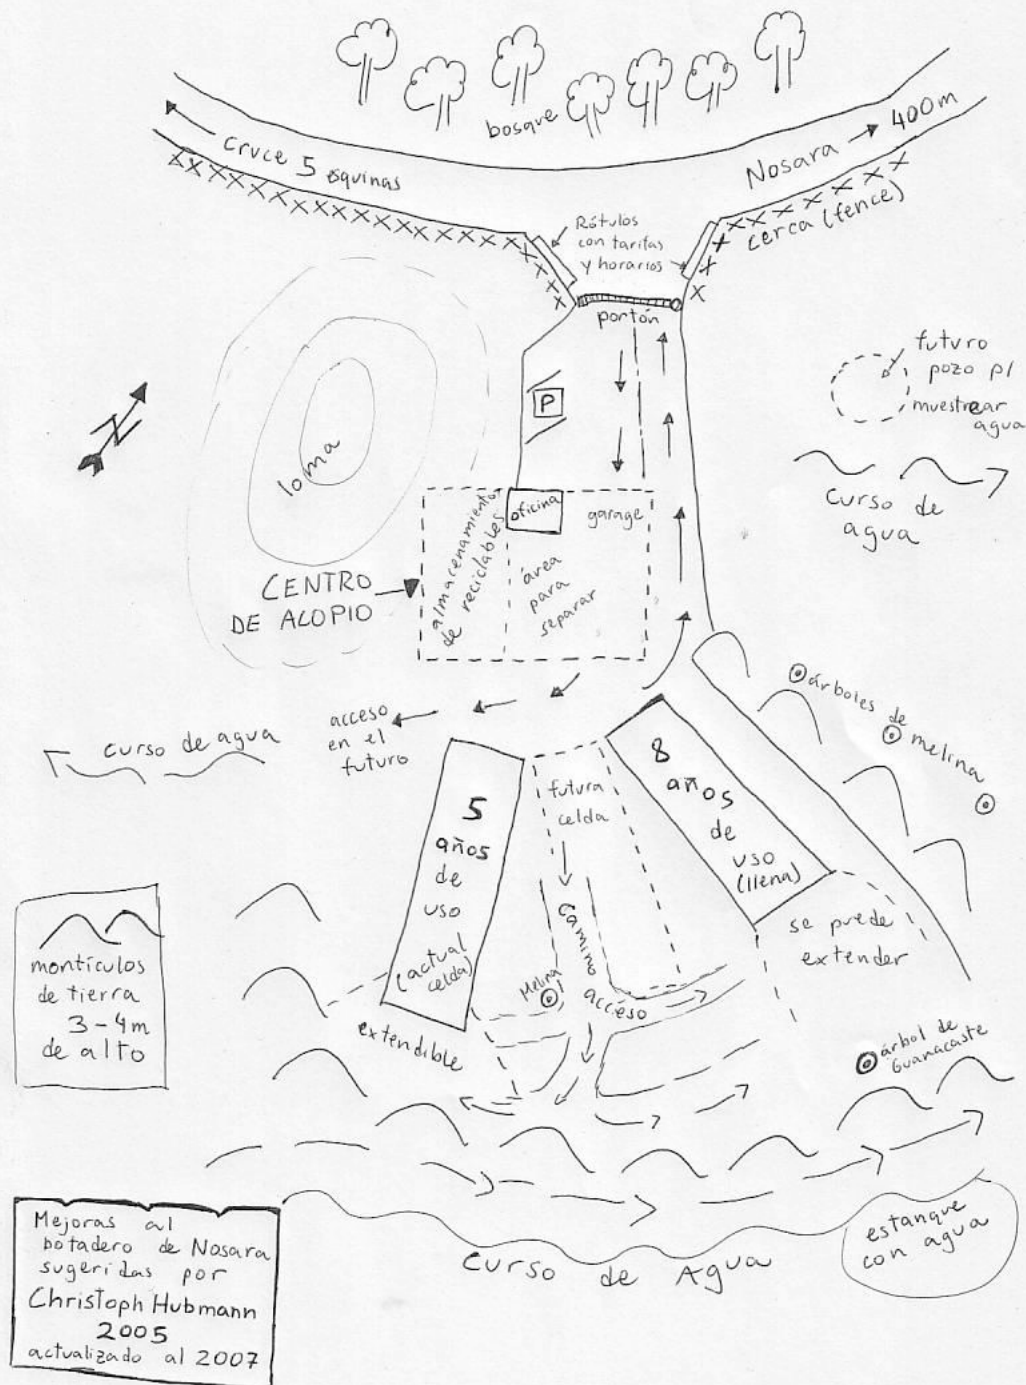 bosque
cruce 5 esquinas
Nosara → 400m
cerca (fence)
Rótulos
con tarifas
y horarios
portón
P
futuro
pozo p/
muestrear
agua
curso de
agua
N
loma
oficina
garage
almacenamiento
de reciclables
área
para
separar
CENTRO
DE ACOPIO
árboles de
melina
acceso
en el
futuro
curso de agua
5
años
de
uso
(actual
celda)
futura
celda
8
años
de
uso
(llena)
se puede
extender
camino
acceso
Melina
extendible
montículos
de tierra
3-4m
de alto
árbol de
Guanacaste
estanque
con agua
Curso de Agua
Mejoras al
botadero de Nosara
sugeridas por
Christoph Hubmann
2005
actualizado al 2007